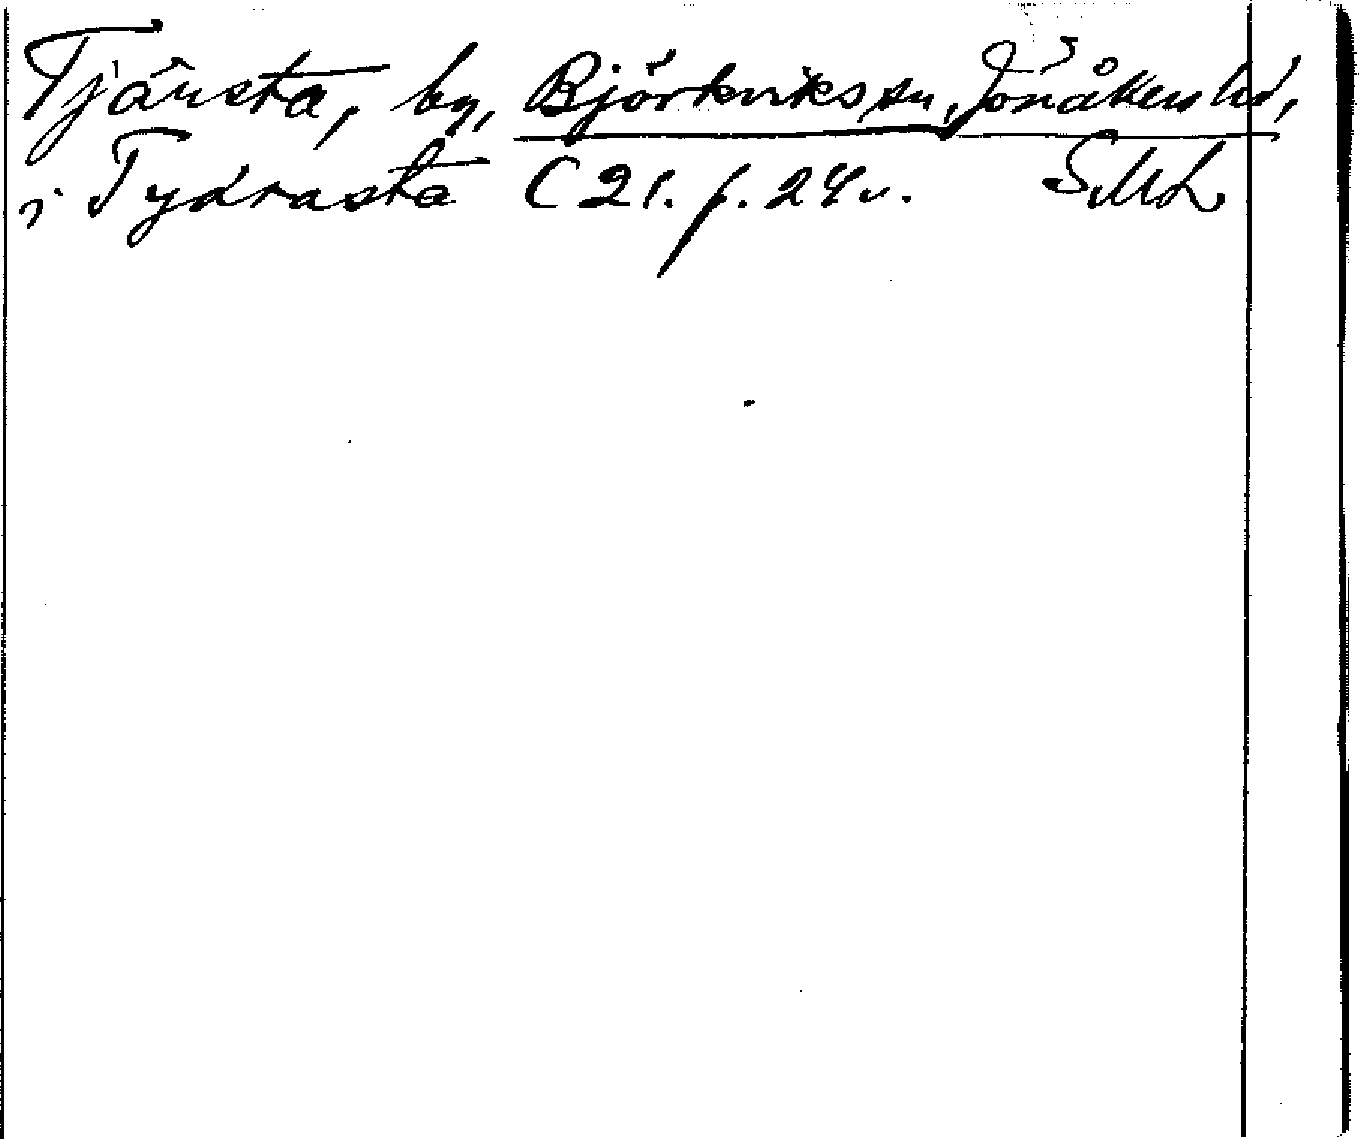 Tjärsta, by, Björkviks sn, Jönåkers hd,
i Tydrasta C 21. f. 24 v. SML